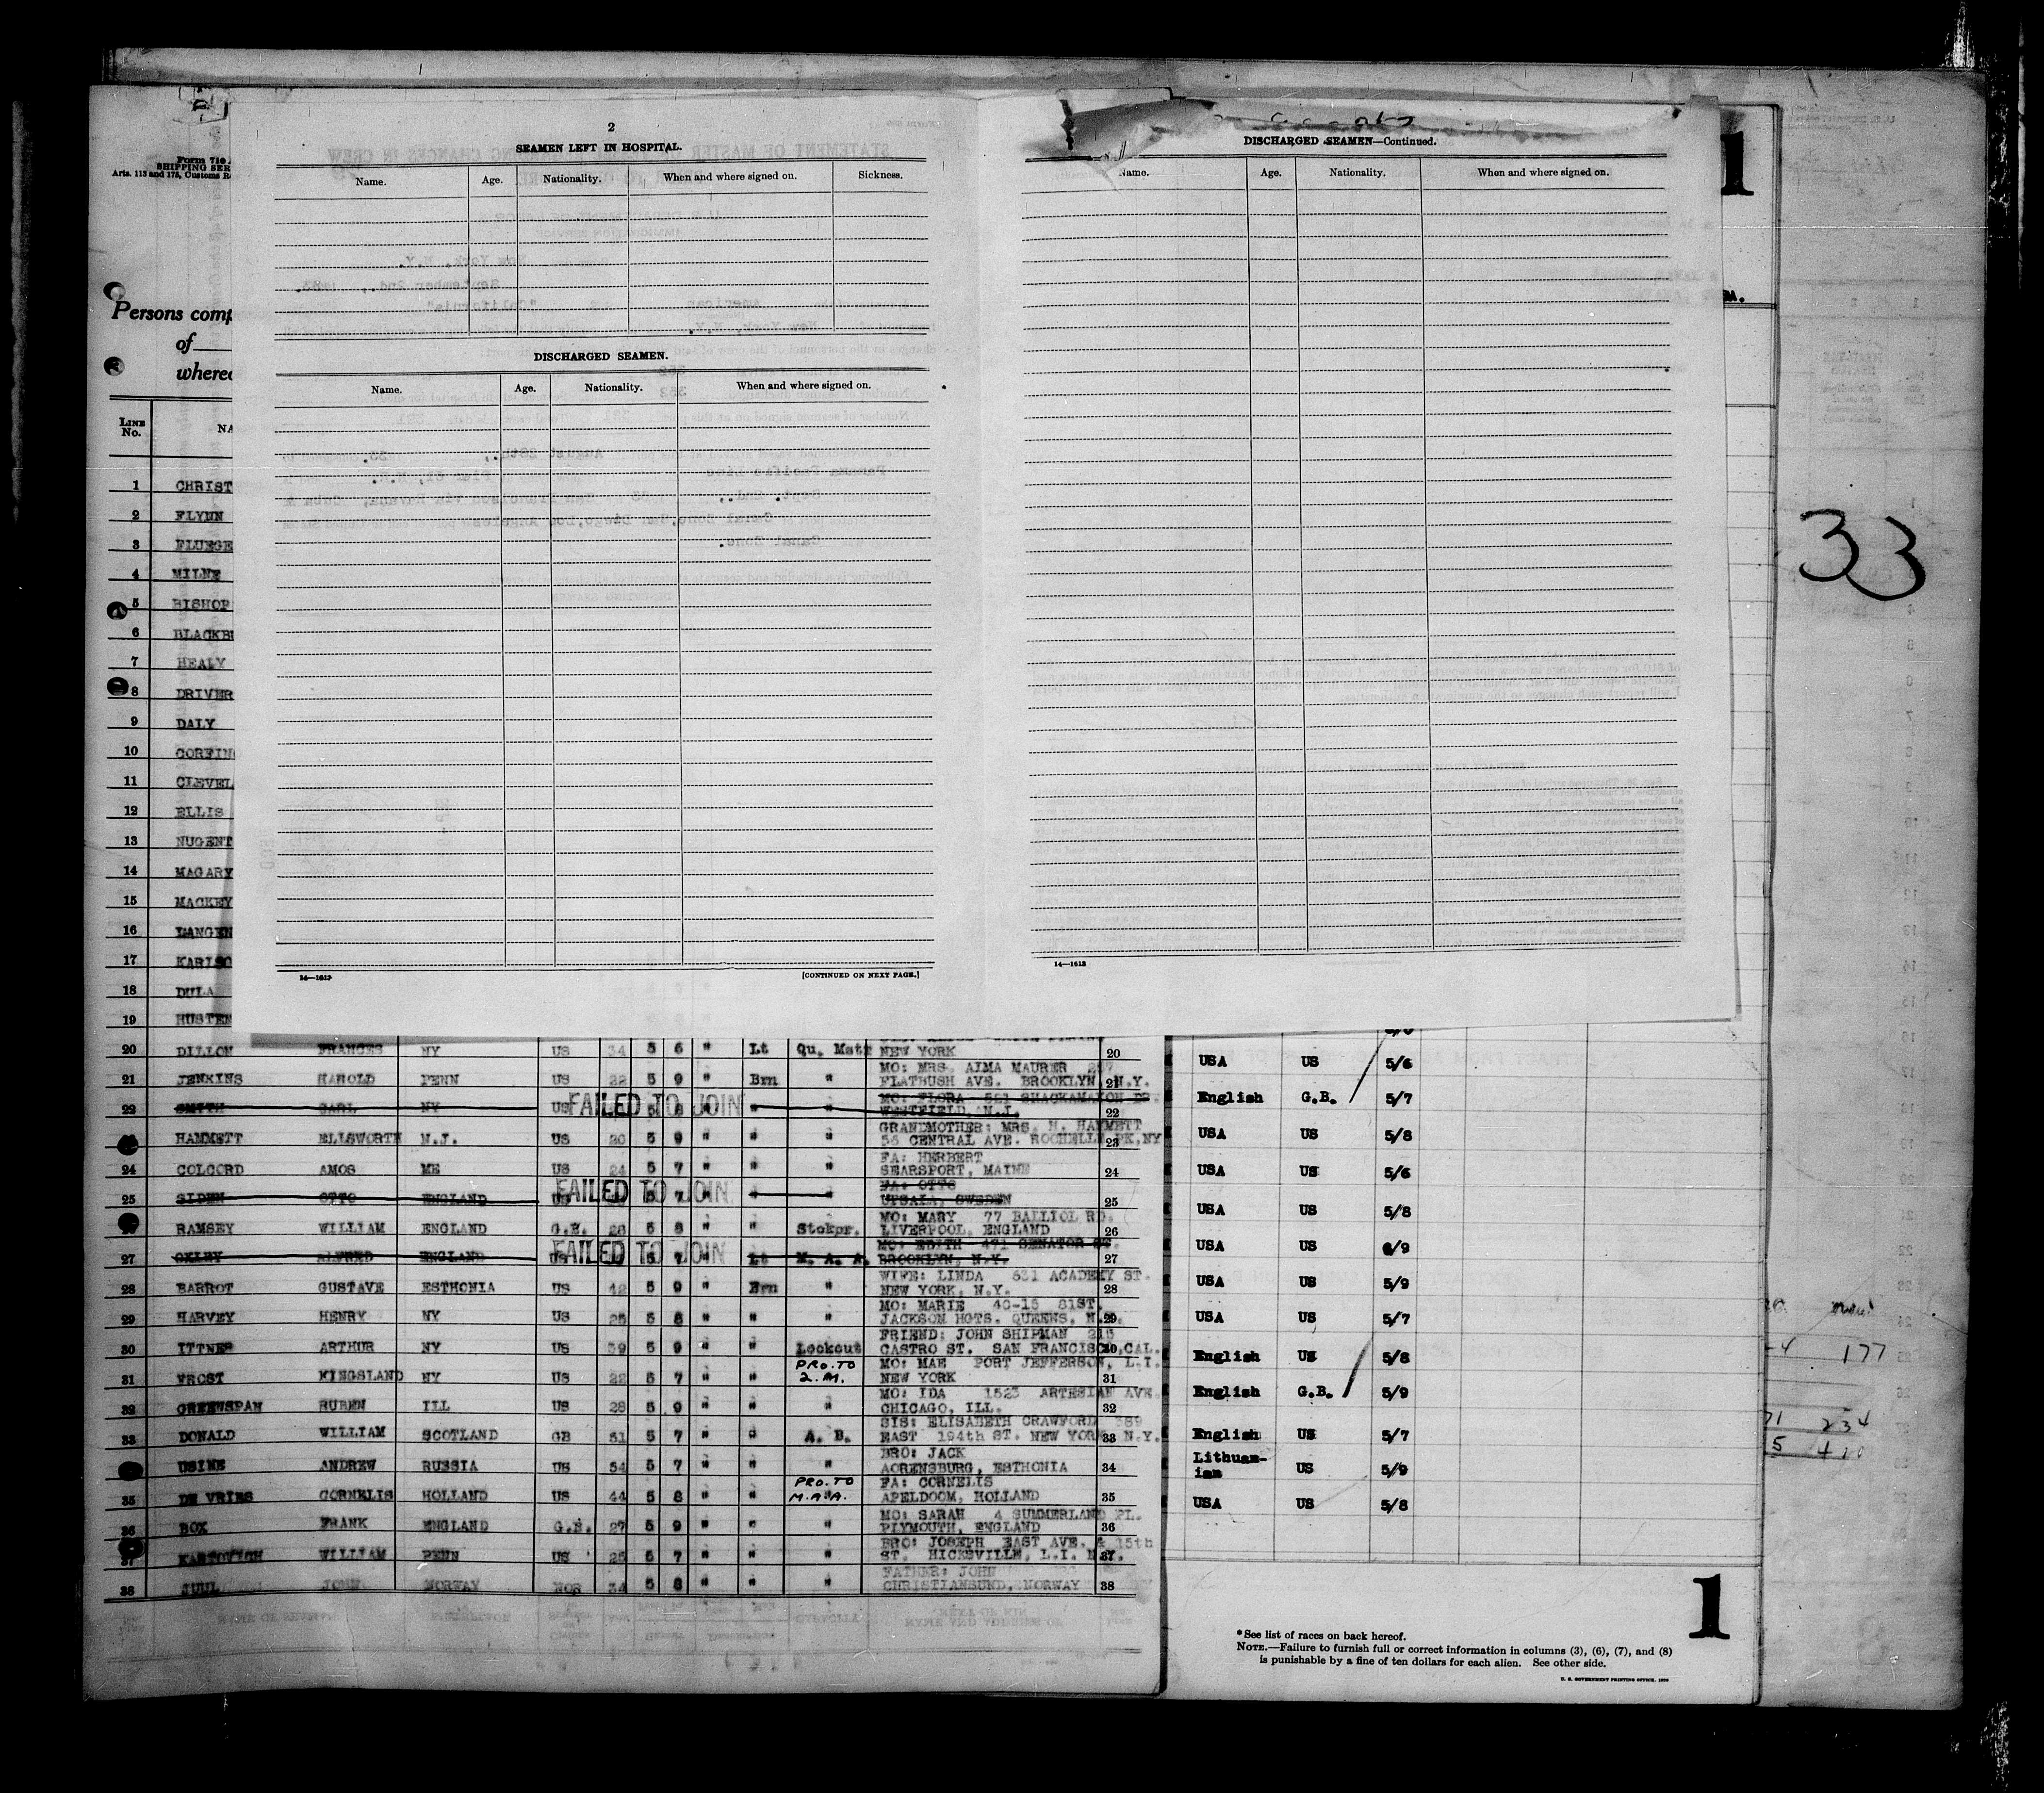 2
SEAMEN LEFT IN HOSPITAL.
Name. Age. Nationality. When and where signed on. Sickness.
DISCHARGED SEAMEN.
Name. Age. Nationality. When and where signed on.
14—1613
[CONTINUED ON NEXT PAGE.]
DISCHARGED SEAMEN—Continued.
Name. Age. Nationality. When and where signed on.
14—1613
1
33
Form 710
SHIPPING SER
Arts. 113 and 175, Customs R
Persons comp
of
where
LINE No. NA
1 CHRIST
2 FLYNN
3 FLUEGE
4 MILNE
5 BISHOP
6 BLACKB
7 HEALY
8 DRIVER
9 DALY
10 CORFIN
11 CLEVEL
12 ELLIS
13 NUGENT
14 MAGARY
15 MACKEY
16 LANGEN
17 KARLSO
18 DULA
19 HUSTEN
20 DILLON FRANCES NY US 34 5 6 " Lt Qu. Mstr NEW YORK 20
21 JENKINS HAROLD PENN US 22 5 9 " Brn " MO: MRS. AIMA MAURER
FLATBUSH AVE. BROOKLYN, N.Y. 21
22 SMITH CARL NY US FAILED TO JOIN " MO: FLORA 521 SHACKAMAXON
WESTFIELD, N.J. 22
HAMMETT ELLSWORTH N.J. US 20 5 9 " " " GRANDMOTHER: MRS. H. HAMMETT
56 CENTRAL AVE. ROCHELLE PK, NY 23
24 COLCORD AMOS ME US 24 5 7 " " " FA: HERBERT
SEARSPORT, MAINE 24
25 SIDEN OTTO ENGLAND US FAILED TO JOIN " FA: OTTO
UPSALA, SWEDEN 25
RAMSEY WILLIAM ENGLAND G.B. 28 5 8 " " Stokpr. MO: MARY 77 BALLIOL RD.
LIVERPOOL, ENGLAND 26
27 OXLEY ALFRED ENGLAND US FAILED TO JOIN Lt M. A. A. MO: EDITH 471 SENATOR ST.
BROOKLYN, N.Y. 27
28 BARROT GUSTAVE ESTHONIA US 42 5 9 " Brn " WIFE: LINDA 531 ACADEMY ST.
NEW YORK, N.Y. 28
29 HARVEY HENRY NY US 25 5 8 " " " MO: MARIE 40-15 81ST.
JACKSON HGTS. QUEENS, N.Y. 29
30 ITTNER ARTHUR NY US 39 5 9 " " Lookout FRIEND: JOHN SHIPMAN 215
CASTRO ST. SAN FRANCISCO, CAL. 30
31 WROST KINGSLAND NY US 22 5 7 " " PRO. TO 2. M. MO: MAE PORT JEFFERSON, L.I.
NEW YORK 31
32 GREENSPAN RUBEN ILL US 28 5 9 " " " MO: IDA 1523 ARTESIAN AVE.
CHICAGO, ILL. 32
33 DONALD WILLIAM SCOTLAND GB 51 5 7 " " A. B. SIS: ELISABETH CRAWFORD 389
EAST 194th ST. NEW YORK N.Y. 33
USINE ANDREW RUSSIA US 54 5 7 " " " BRO: JACK
AORENSBURG, ESTHONIA 34
35 DE VRIES CORNELIS HOLLAND US 44 5 8 " " PRO. TO M.A.A. FA: CORNELIS
APELDOOM, HOLLAND 35
36 BOX FRANK ENGLAND G.B. 27 5 9 " " " MO: SARAH 4 SUMMERLAND PL.
PLYMOUTH, ENGLAND 36
37 KARTOVICH WILLIAM PENN US 25 5 7 " " " BRO: JOSEPH EAST AVE. & 15th
ST. HICKSVILLE, L.I. N.Y. 37
38 JUUL JOHN NORWAY NOR 34 5 8 " " " FATHER: JOHN
CHRISTIANSUND, NORWAY 38
USA US 5/6
English G.B. 5/7
USA US 5/8
USA US 5/6
USA US 5/8
USA US 6/9
USA US 5/9
USA US 5/7
English US 5/8
English G.B. 5/9
English US 5/7
Lithuanian US 5/9
USA US 5/8
177
234
1
*See list of races on back hereof.
NOTE.—Failure to furnish full or correct information in columns (3), (6), (7), and (8)
is punishable by a fine of ten dollars for each alien. See other side.
U. S. GOVERNMENT PRINTING OFFICE